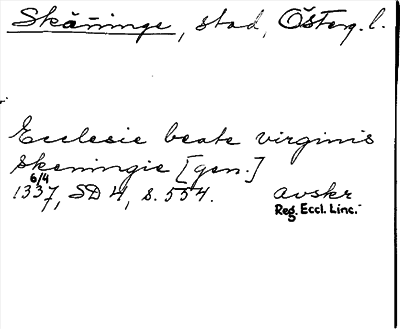 Skänninge, stad, Österg. l.
Ecclesie beate virginis
Skeningie [gen.]
6/4
1337, SD 4, s. 554. avskr
Reg. Eccl. Linc.